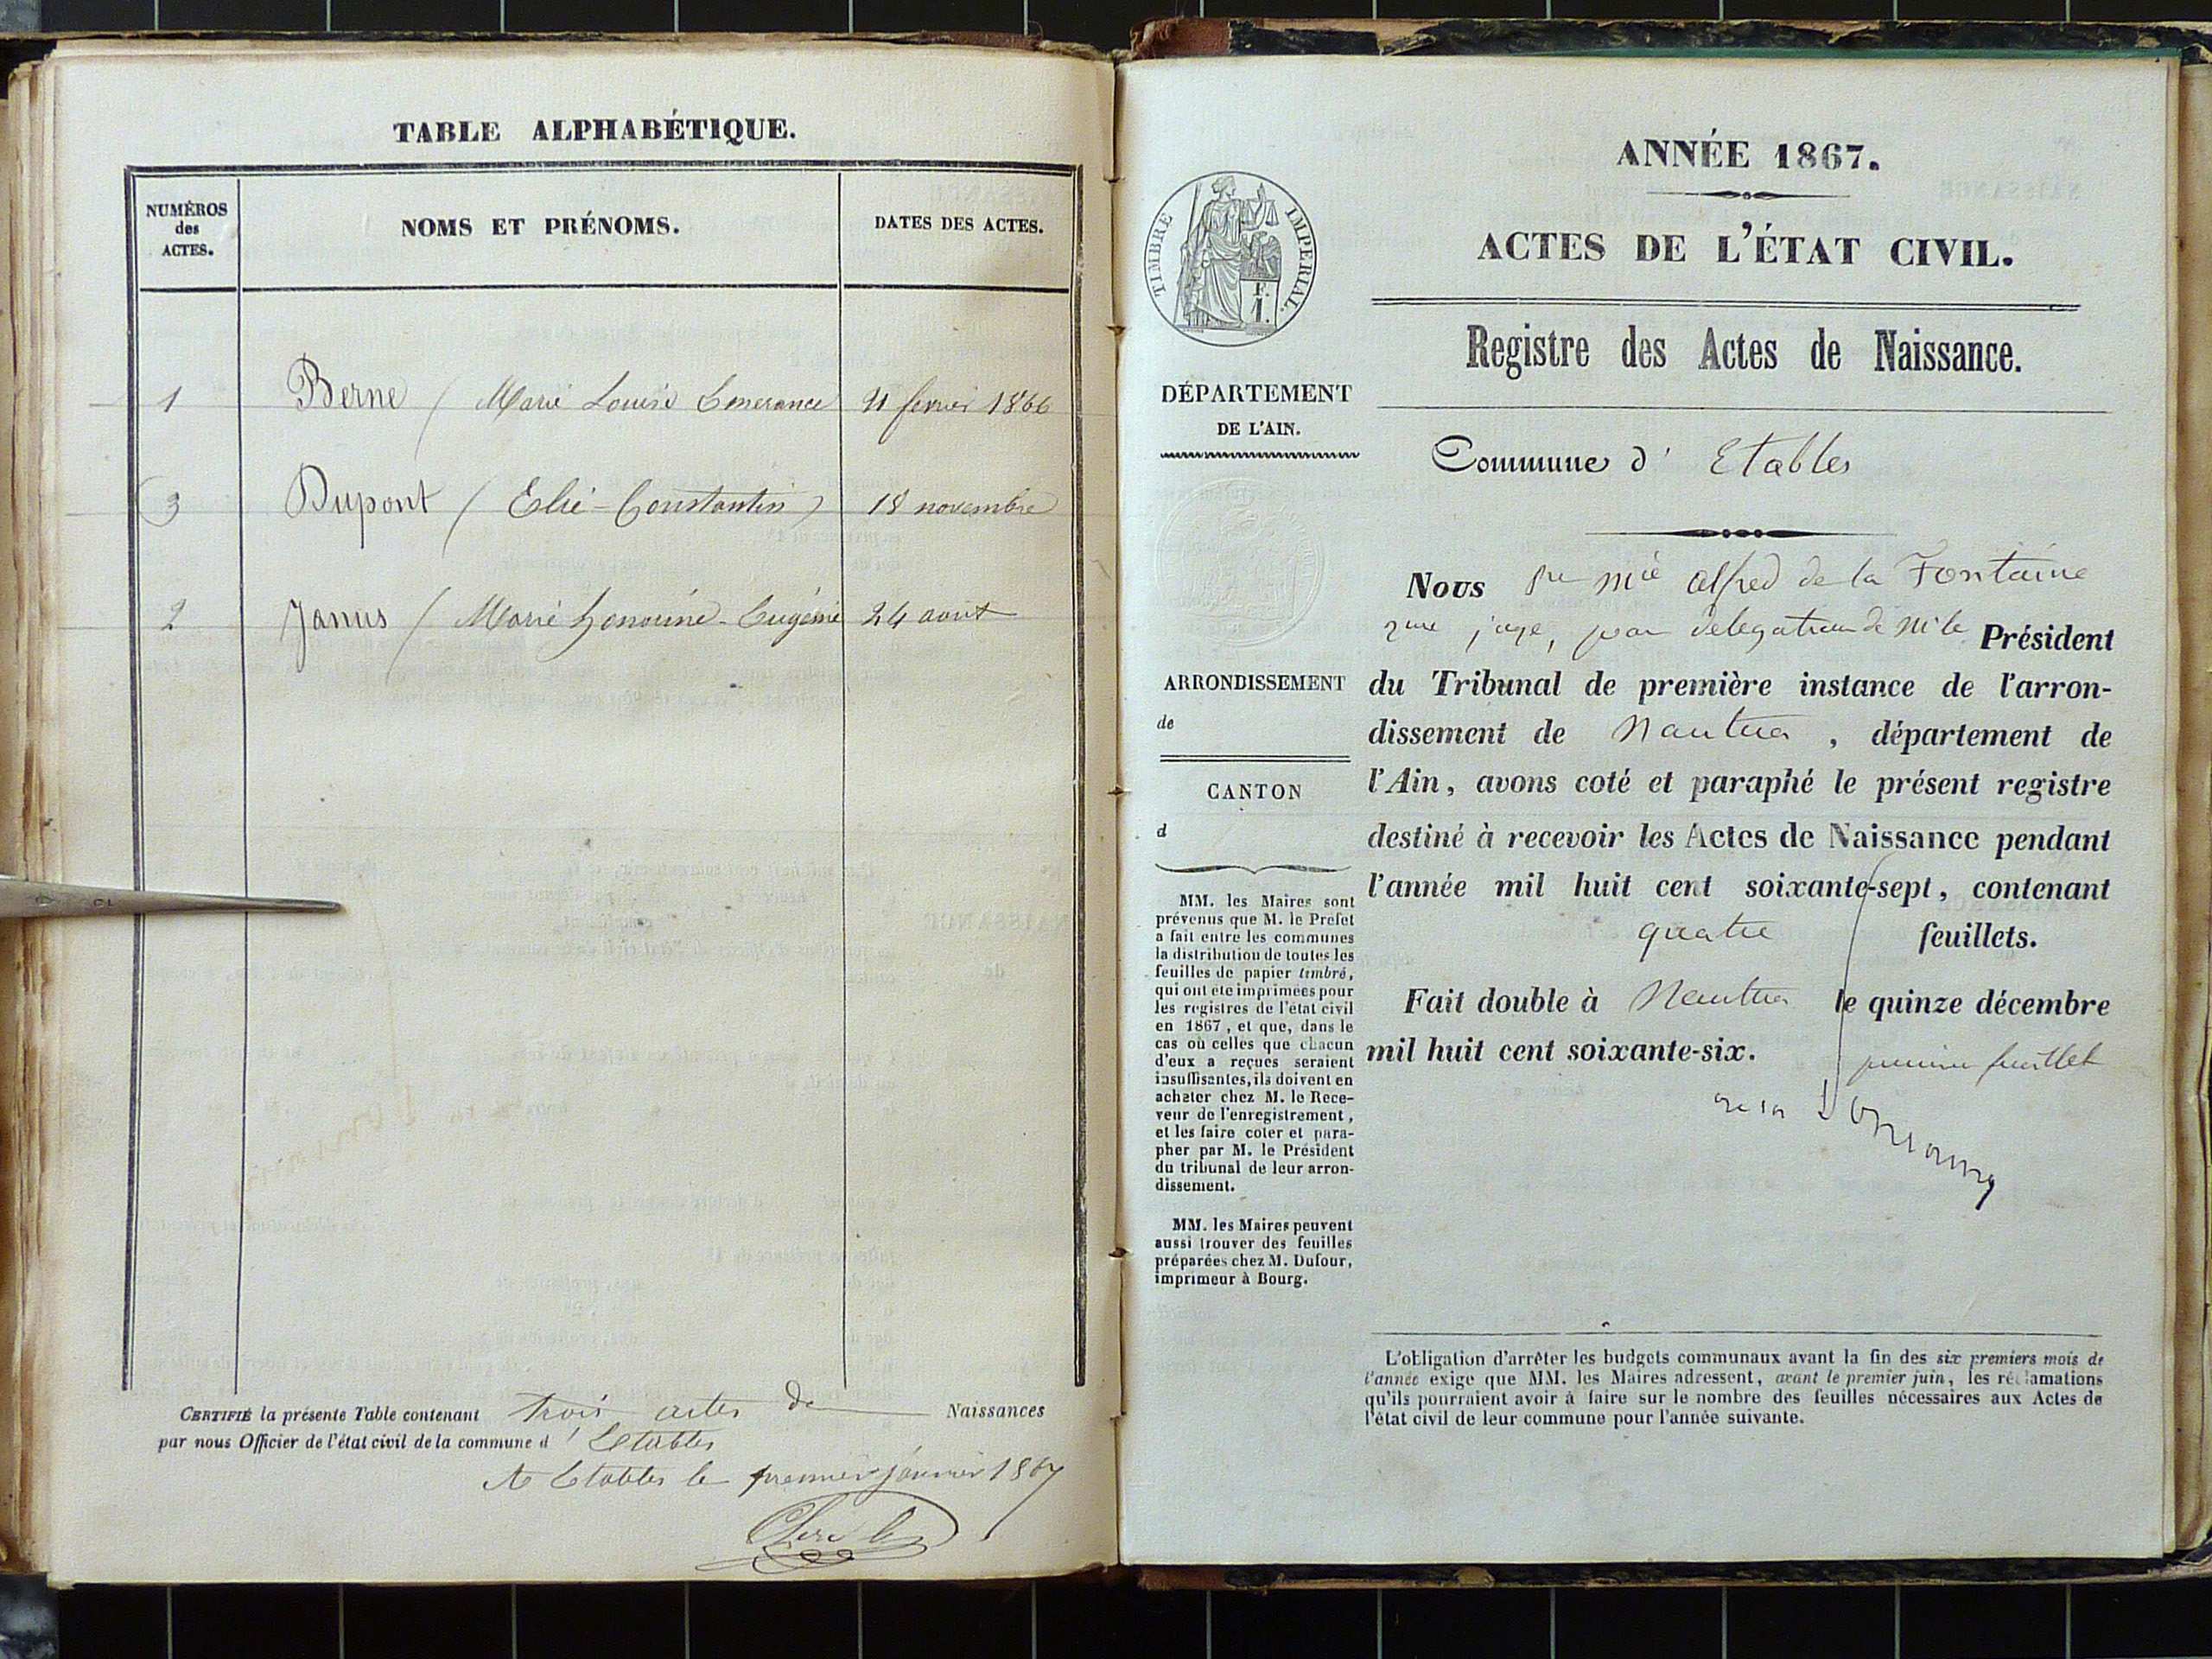 TABLE ALPHABÉTIQUE.
NUMÉROS
des
ACTES.
NOMS ET PRÉNOMS.
DATES DES ACTES.
1 Berne ( Marie Louise 21 fevrier 1866
3 Dupont ( Elie-Constantin ) 18 novembre
2 Janus ( Marie Eugénie 24 aout
CERTIFIÉ la présente Table contenant trois actes de Naissances
par nous Officier de l'état civil de la commune d' Etables
A Etables le premier janvier 1867
TIMBRE IMPERIAL.
F.
1.
DÉPARTEMENT
DE L'AIN.
ARRONDISSEMENT
de
CANTON
d
MM. les Maires sont
prévenus que M. le Prefet
a fait entre les communes
la distribution de toutes les
feuilles de papier timbré,
qui ont été imprimées pour
les registres de l'état civil
en 1867, et que, dans le
cas où celles que chacun
d'eux a reçues seraient
insuffisantes, ils doivent en
acheter chez M. le Rece-
veur de l'enregistrement,
et les faire coter et para-
pher par M. le Président
du tribunal de leur arron-
dissement.
MM. les Maires peuvent
aussi trouver des feuilles
préparées chez M. Dufour,
imprimeur à Bourg.
ANNÉE 1867.
ACTES DE L'ÉTAT CIVIL.
Registre des Actes de Naissance.
Commune d' Etables
Nous Alfred de la Fontaine
juge, par delegation de Mr le Président
du Tribunal de première instance de l'arron-
dissement de Nantua, département de
l'Ain, avons coté et paraphé le présent registre
destiné à recevoir les Actes de Naissance pendant
l'année mil huit cent soixante-sept, contenant
quatre feuillets.
Fait double à Nantua le quinze décembre
mil huit cent soixante-six.
premier feuillet
L'obligation d'arrêter les budgets communaux avant la fin des six premiers mois de
l'année exige que MM. les Maires adressent, avant le premier juin, les réclamations
qu'ils pourraient avoir à faire sur le nombre des feuilles nécessaires aux Actes de
l'état civil de leur commune pour l'année suivante.